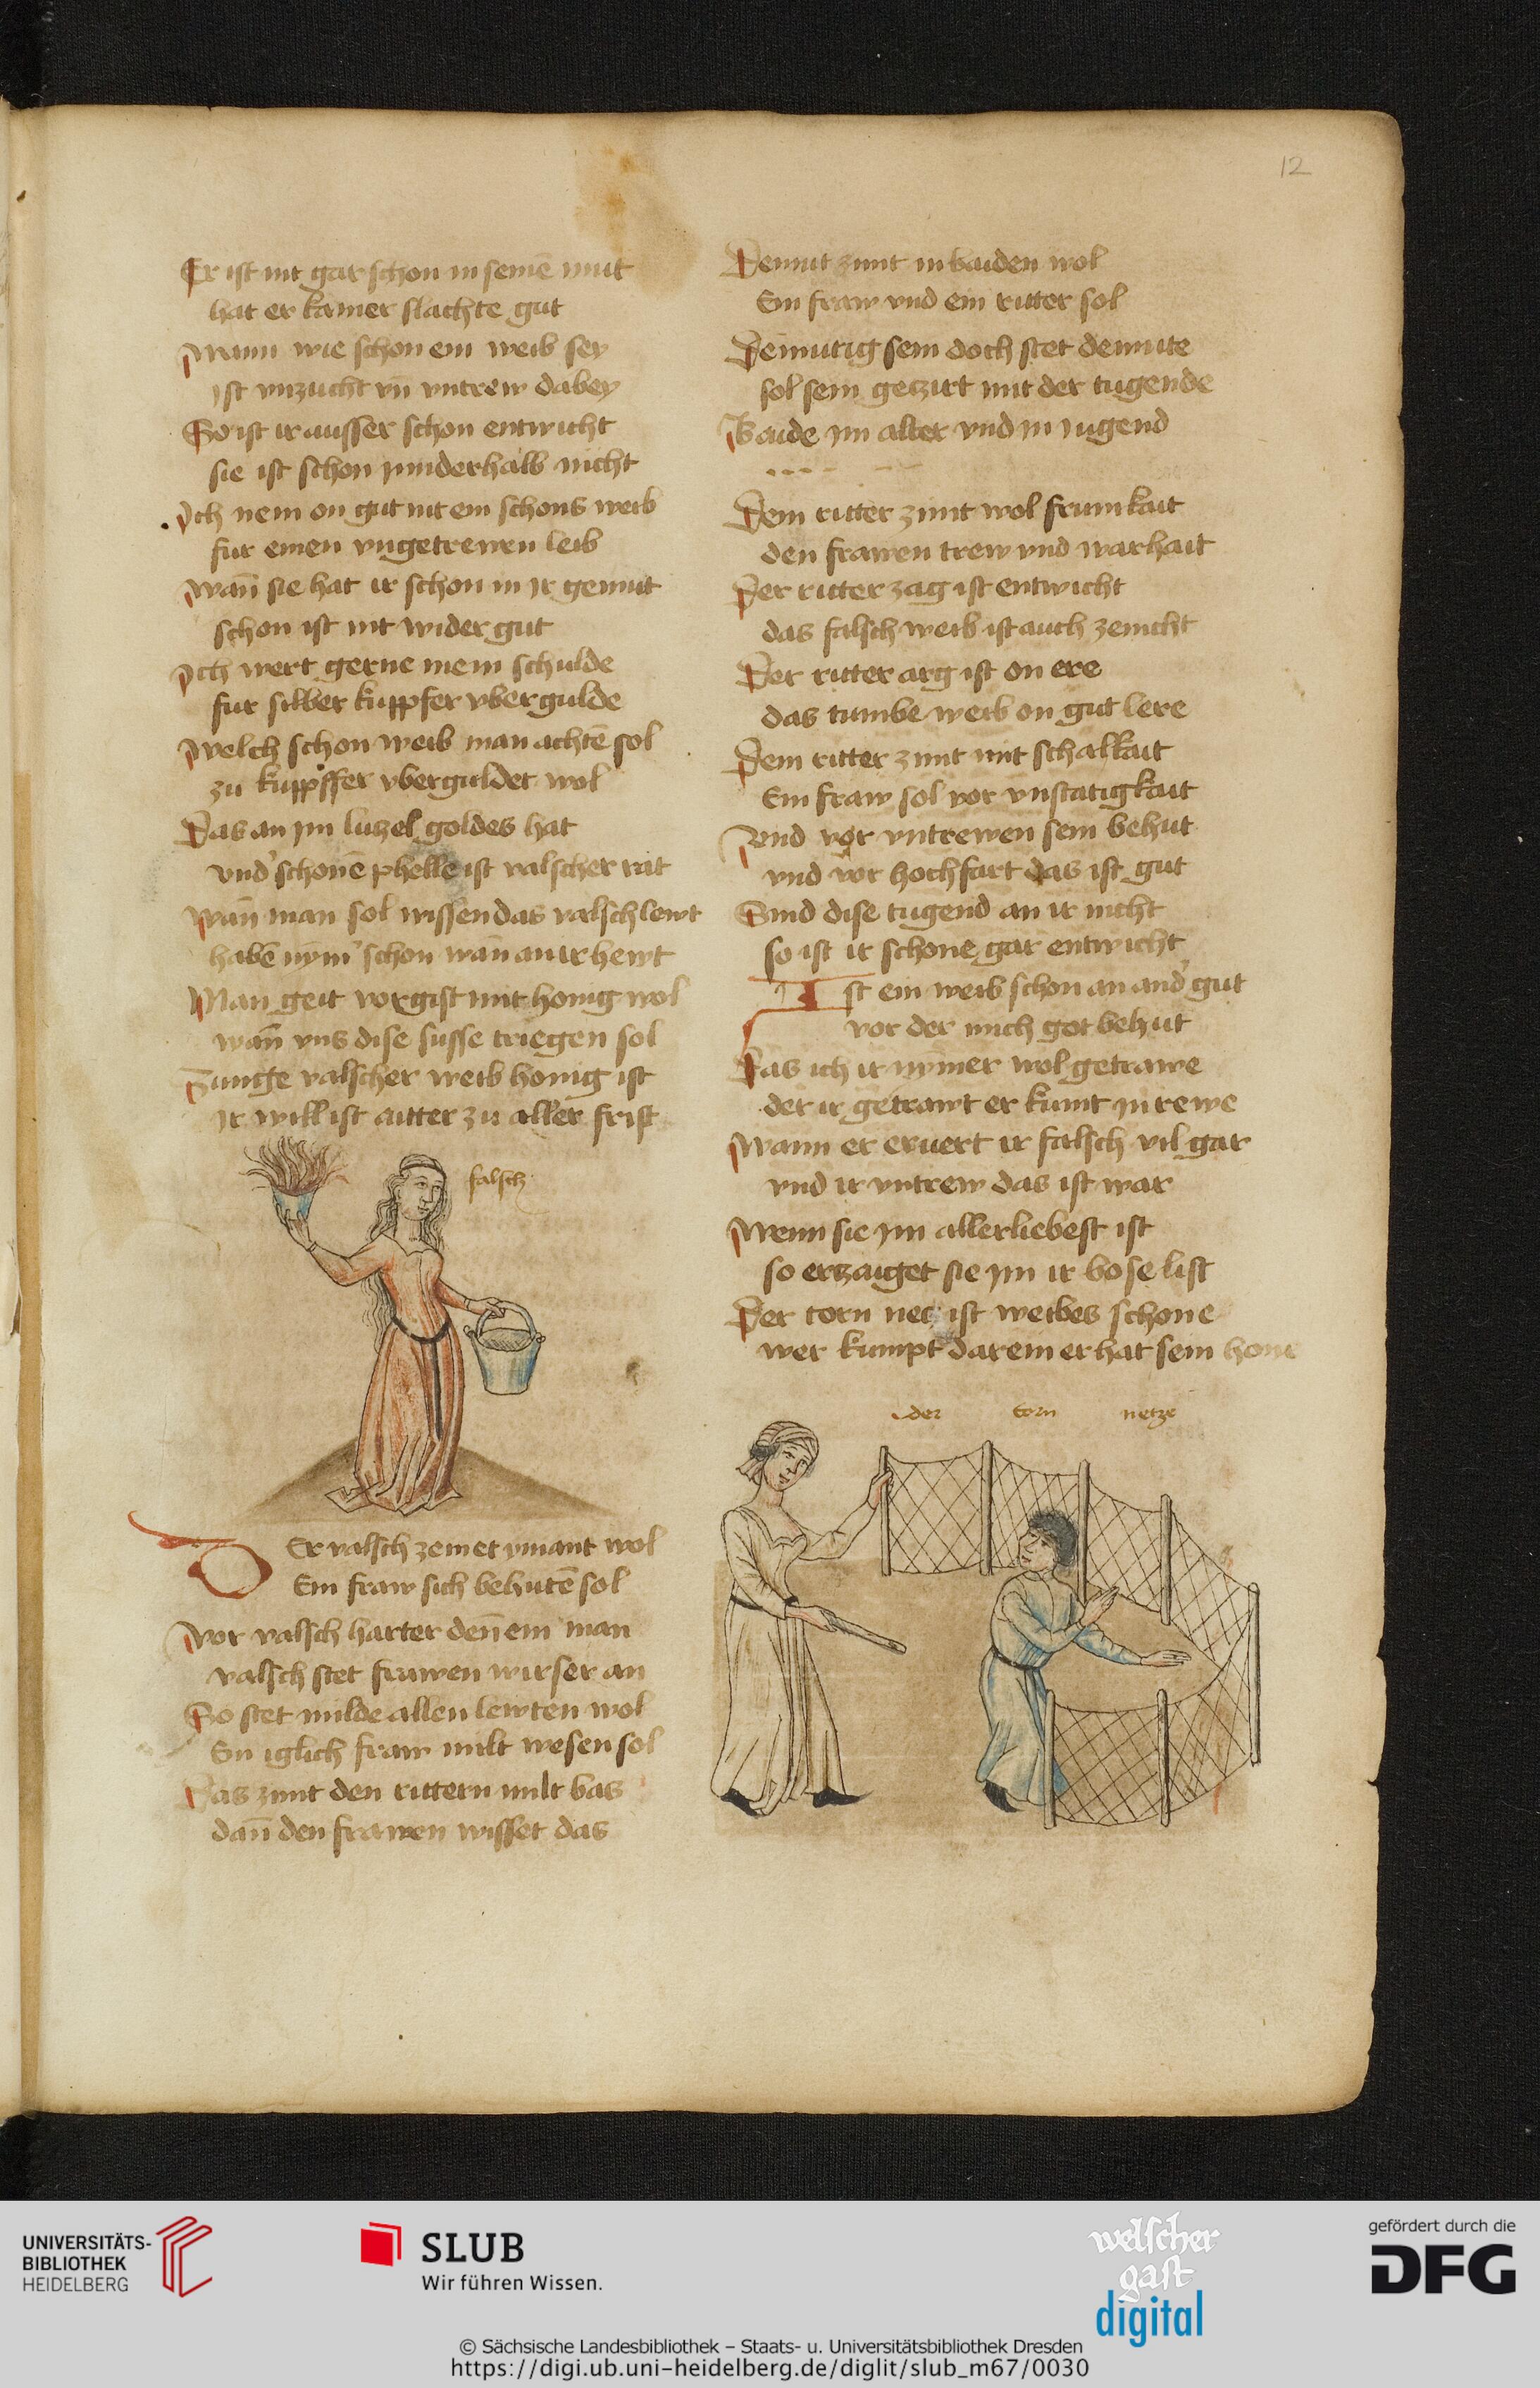 12
Er ist nit gar schon in seinē mut
hat er kainer slachte gut
Wann wie schon ein weib sey
ist vnzucht vn̄ vntrew dabey
So ist ir ausser schon entwicht
sie ist schon jnnderhalb nicht
Ich nem on gut nit ein schons weib
fur einen vngetrewen leib
wan̄ sie hat ir schon in jr gemut
schon ist nit wider gut
Ich wert gerne mein schulde
fur silber kuppfer vbergulde
welch schon weib man achtē sol
zu kuppffer vberguldet wol
Das an jm luzel goldes hat
vnd' schonē phelle ist valscher rat
wan̄ man sol wissen das valsch lewt
habē nym' schon wan̄ an ir hewt
Man geit vorgift mit honig wol
wan̄ vns dise susse triegen sol
Zunge valscher weib honig ist
Ir will ist aitter zu aller frist
falsch
Der valsch zemet ymant wol
Ein fraw sich behutē sol
vor valsch harter den̄ ein man
valsch stet frawen wirser an
So stet milde allen lewten wol
Ein iglich fraw milt wesen sol
Das zimt den rittern milt bas
dan̄ den frawen wisset das
Demut zimt in baiden wol
Ein fraw vnd ein ritter sol
Demutig sein doch stet demute
sol sein geczirt mit der tugende
Baide jm alter vnd jn jugend
Dem ritter zimt wol frumkait
den frawen trew vnd warhait
Der ritter zag ist entwicht
das falsch weib ist auch zenicht
Der ritter arg ist on ere
das tumbe weib on gut lere
Dem ritter zimt nit schalkait
Ein fraw sol vor vnstatigkait
Vnd vor vntrewen sein behut
vnd vor hochfart das ist gut
Sind dise tugend an ir nicht
so ist ir schone gar entwicht
Ist ein weib schon an and' gut
vor der mich got behut
Das ich ir nym̄er wol getrawe
der ir getrawt er kumt jn rewe
Wann er ervert ir falsch vil gar
vnd ir vntrew das ist war
Wenn sie jm allerliebest ist
so erzaiget sie jm ir bose list
Der torn nec ist weibes schone
wer kumpt darein er hat sein hone
der torn netze
UNIVERSITÄTS-
BIBLIOTHEK
HEIDELBERG
SLUB
Wir führen Wissen.
welscher
gast
digital
gefördert durch die
DFG
© Sächsische Landesbibliothek – Staats- u. Universitätsbibliothek Dresden
https://digi.ub.uni-heidelberg.de/diglit/slub_m67/0030